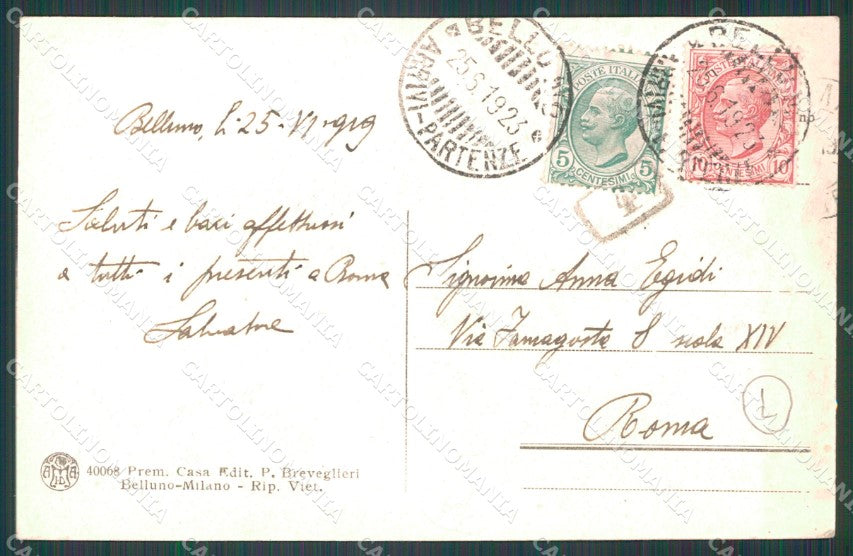 Belluno, li 25-VI-919
Saluti e baci affettuosi
a tutti i presenti a Roma
Salvatore
BELLUNO
25.6.1923
ARRIVI-PARTENZE
POSTE ITALIANE
5 CENTESIMI 5
10 CENTESIMI 10
T
Signorina Anna Egidi
Via Famagosta 8 scala XIV
Roma
T
40068 Prem. Casa Edit. P. Breveglieri
Belluno-Milano - Rip. Viet.
CARTOLINOMANIA